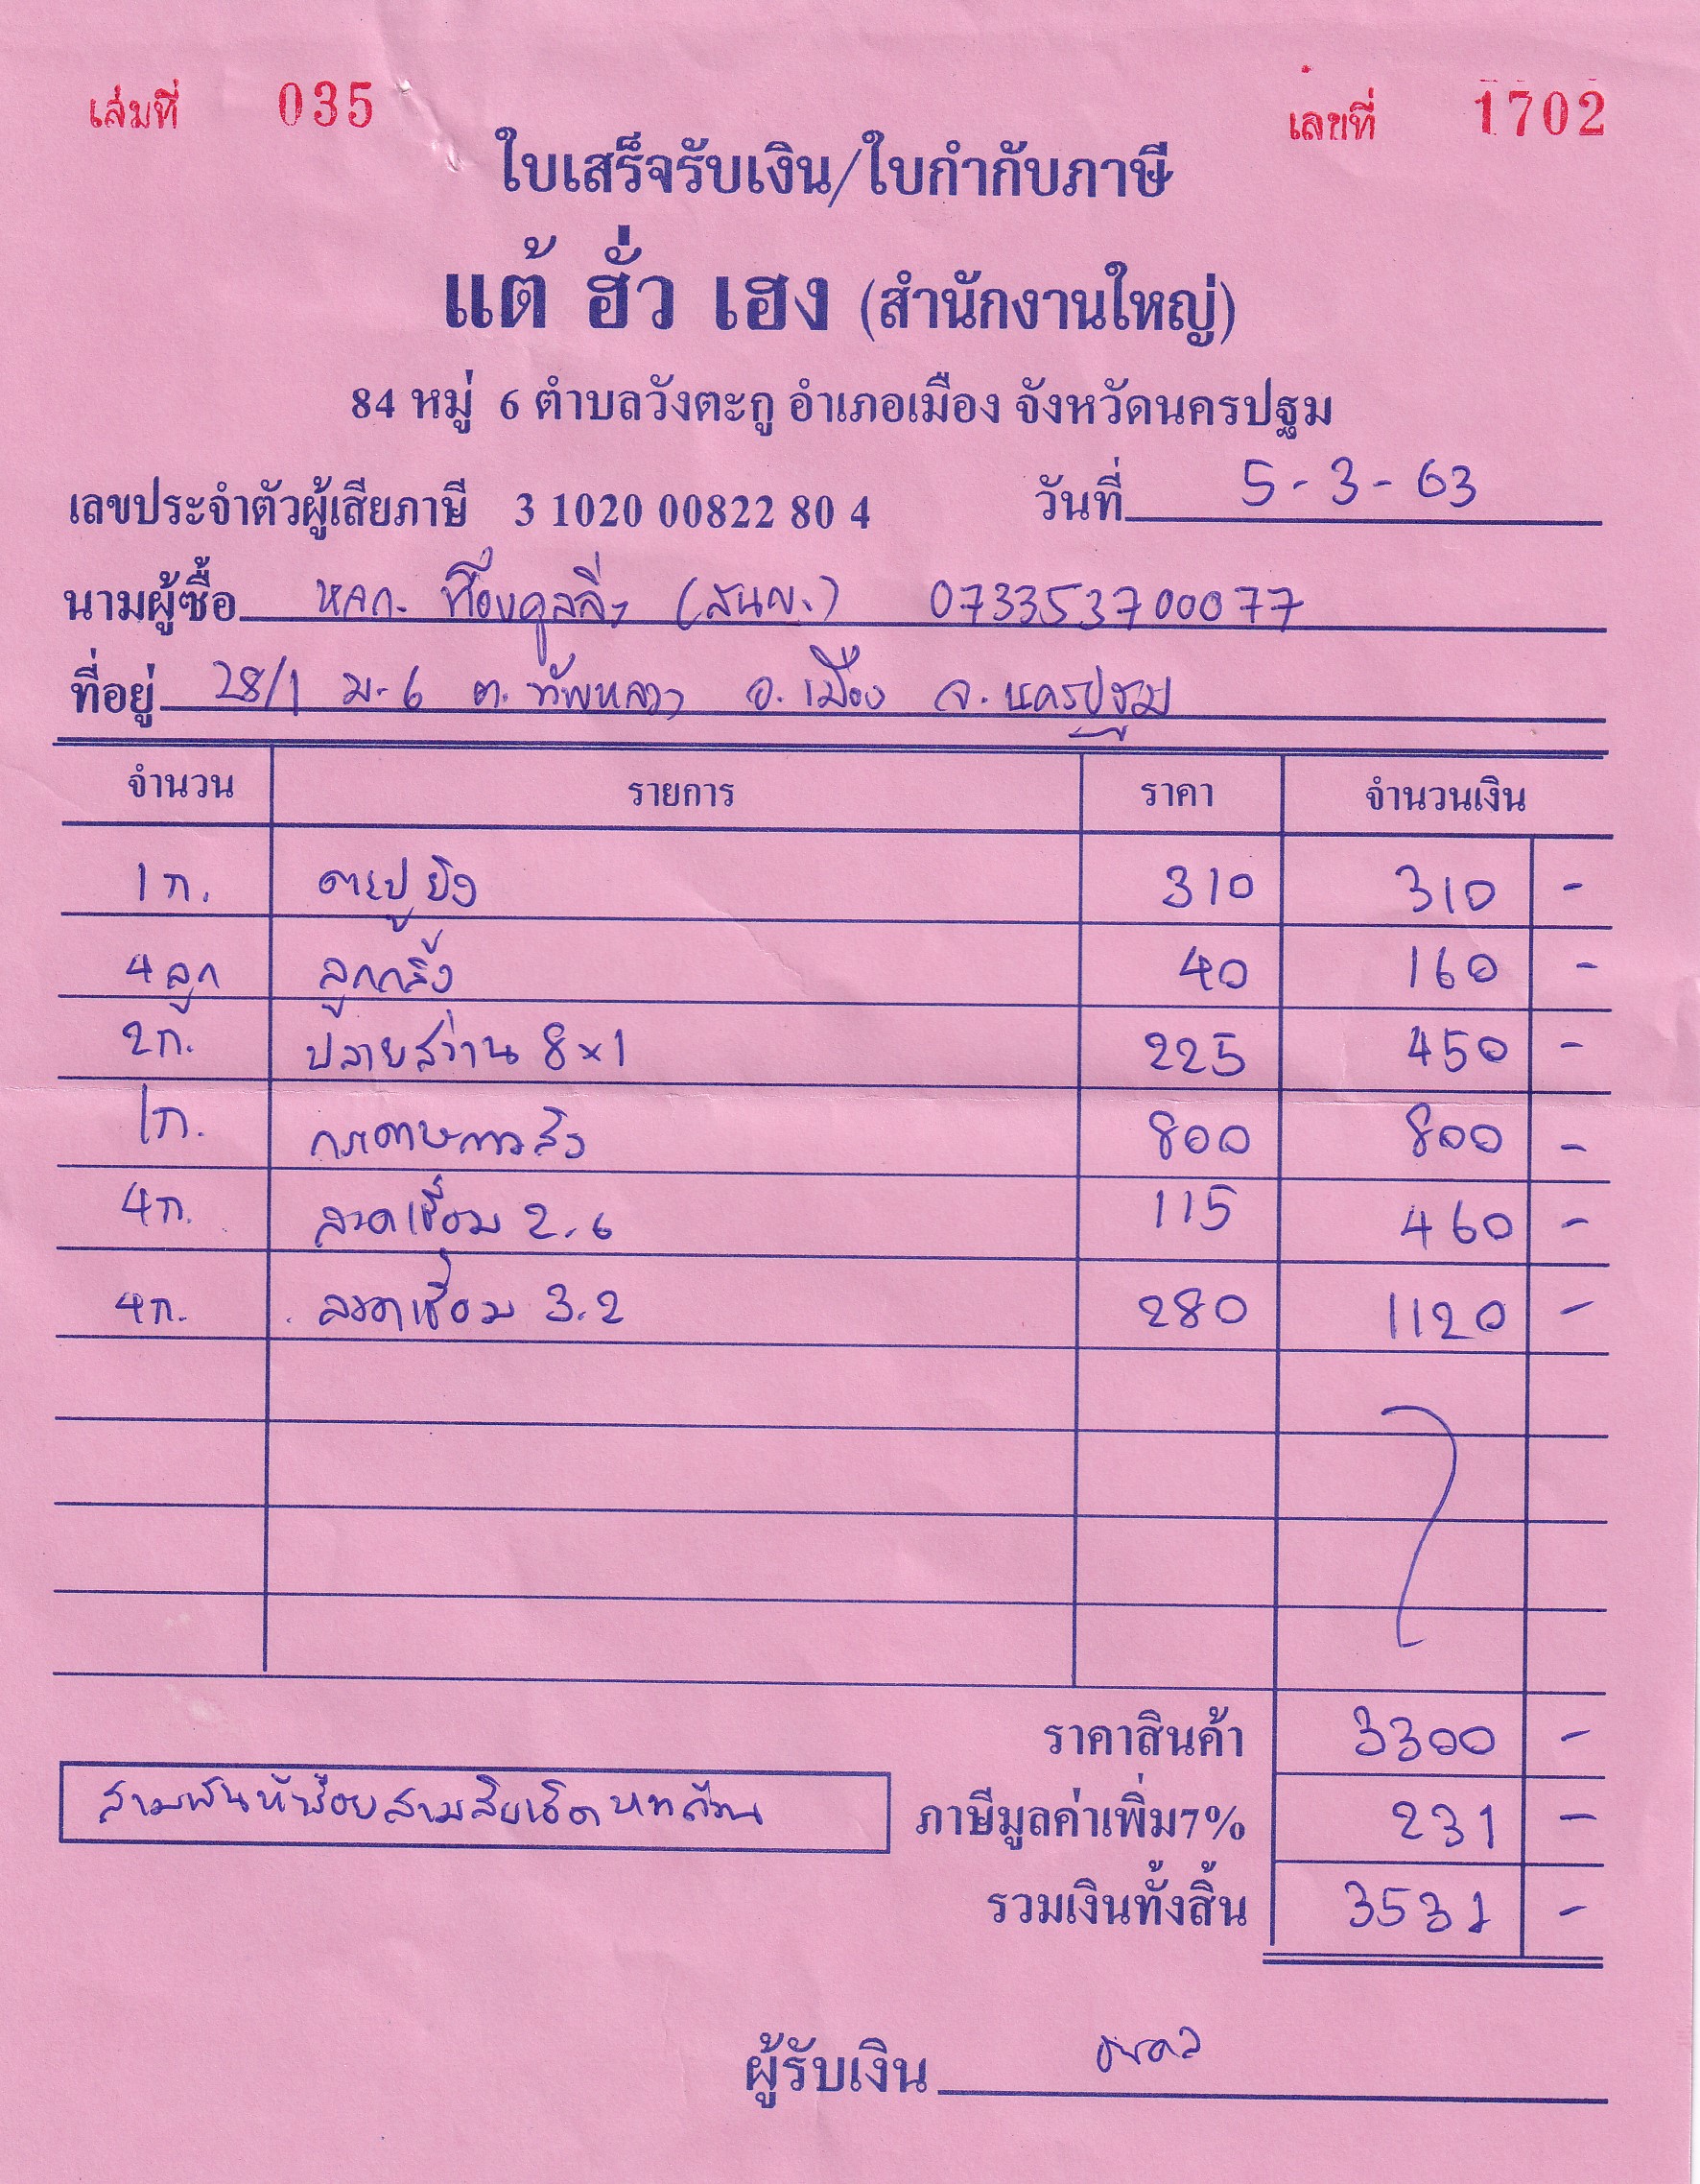 เล่มที่ 035
เลขที่ 1702
ใบเสร็จรับเงิน/ใบกำกับภาษี
แต้ ฮั่ว เฮง (สำนักงานใหญ่)
84 หมู่ 6 ตำบลวังตะกู อำเภอเมือง จังหวัดนครปฐม
เลขประจำตัวผู้เสียภาษี 3 1020 00822 80 4 วันที่ 5-3-63
นามผู้ซื้อ หจก. (สนญ.) 073353700077
ที่อยู่ 28/1 ม.6 ต. ทัพหลวง อ. เมือง จ. นครปฐม
จำนวน รายการ ราคา จำนวนเงิน
1 ก. ตะปูยิง 310 310 -
4 ลูก ลูกกลิ้ง 40 160 -
2 ก. ปลายสว่าน 8x1 225 450 -
1 ก. กระดาษทราย 800 800 -
4 ก. ลวดเชื่อม 2.6 115 460 -
4 ก. ลวดเชื่อม 3.2 280 1120 -
ราคาสินค้า 3300 -
สามพันห้าร้อยสามสิบเอ็ดบาทถ้วน ภาษีมูลค่าเพิ่ม7% 231 -
รวมเงินทั้งสิ้น 3531 -
ผู้รับเงิน